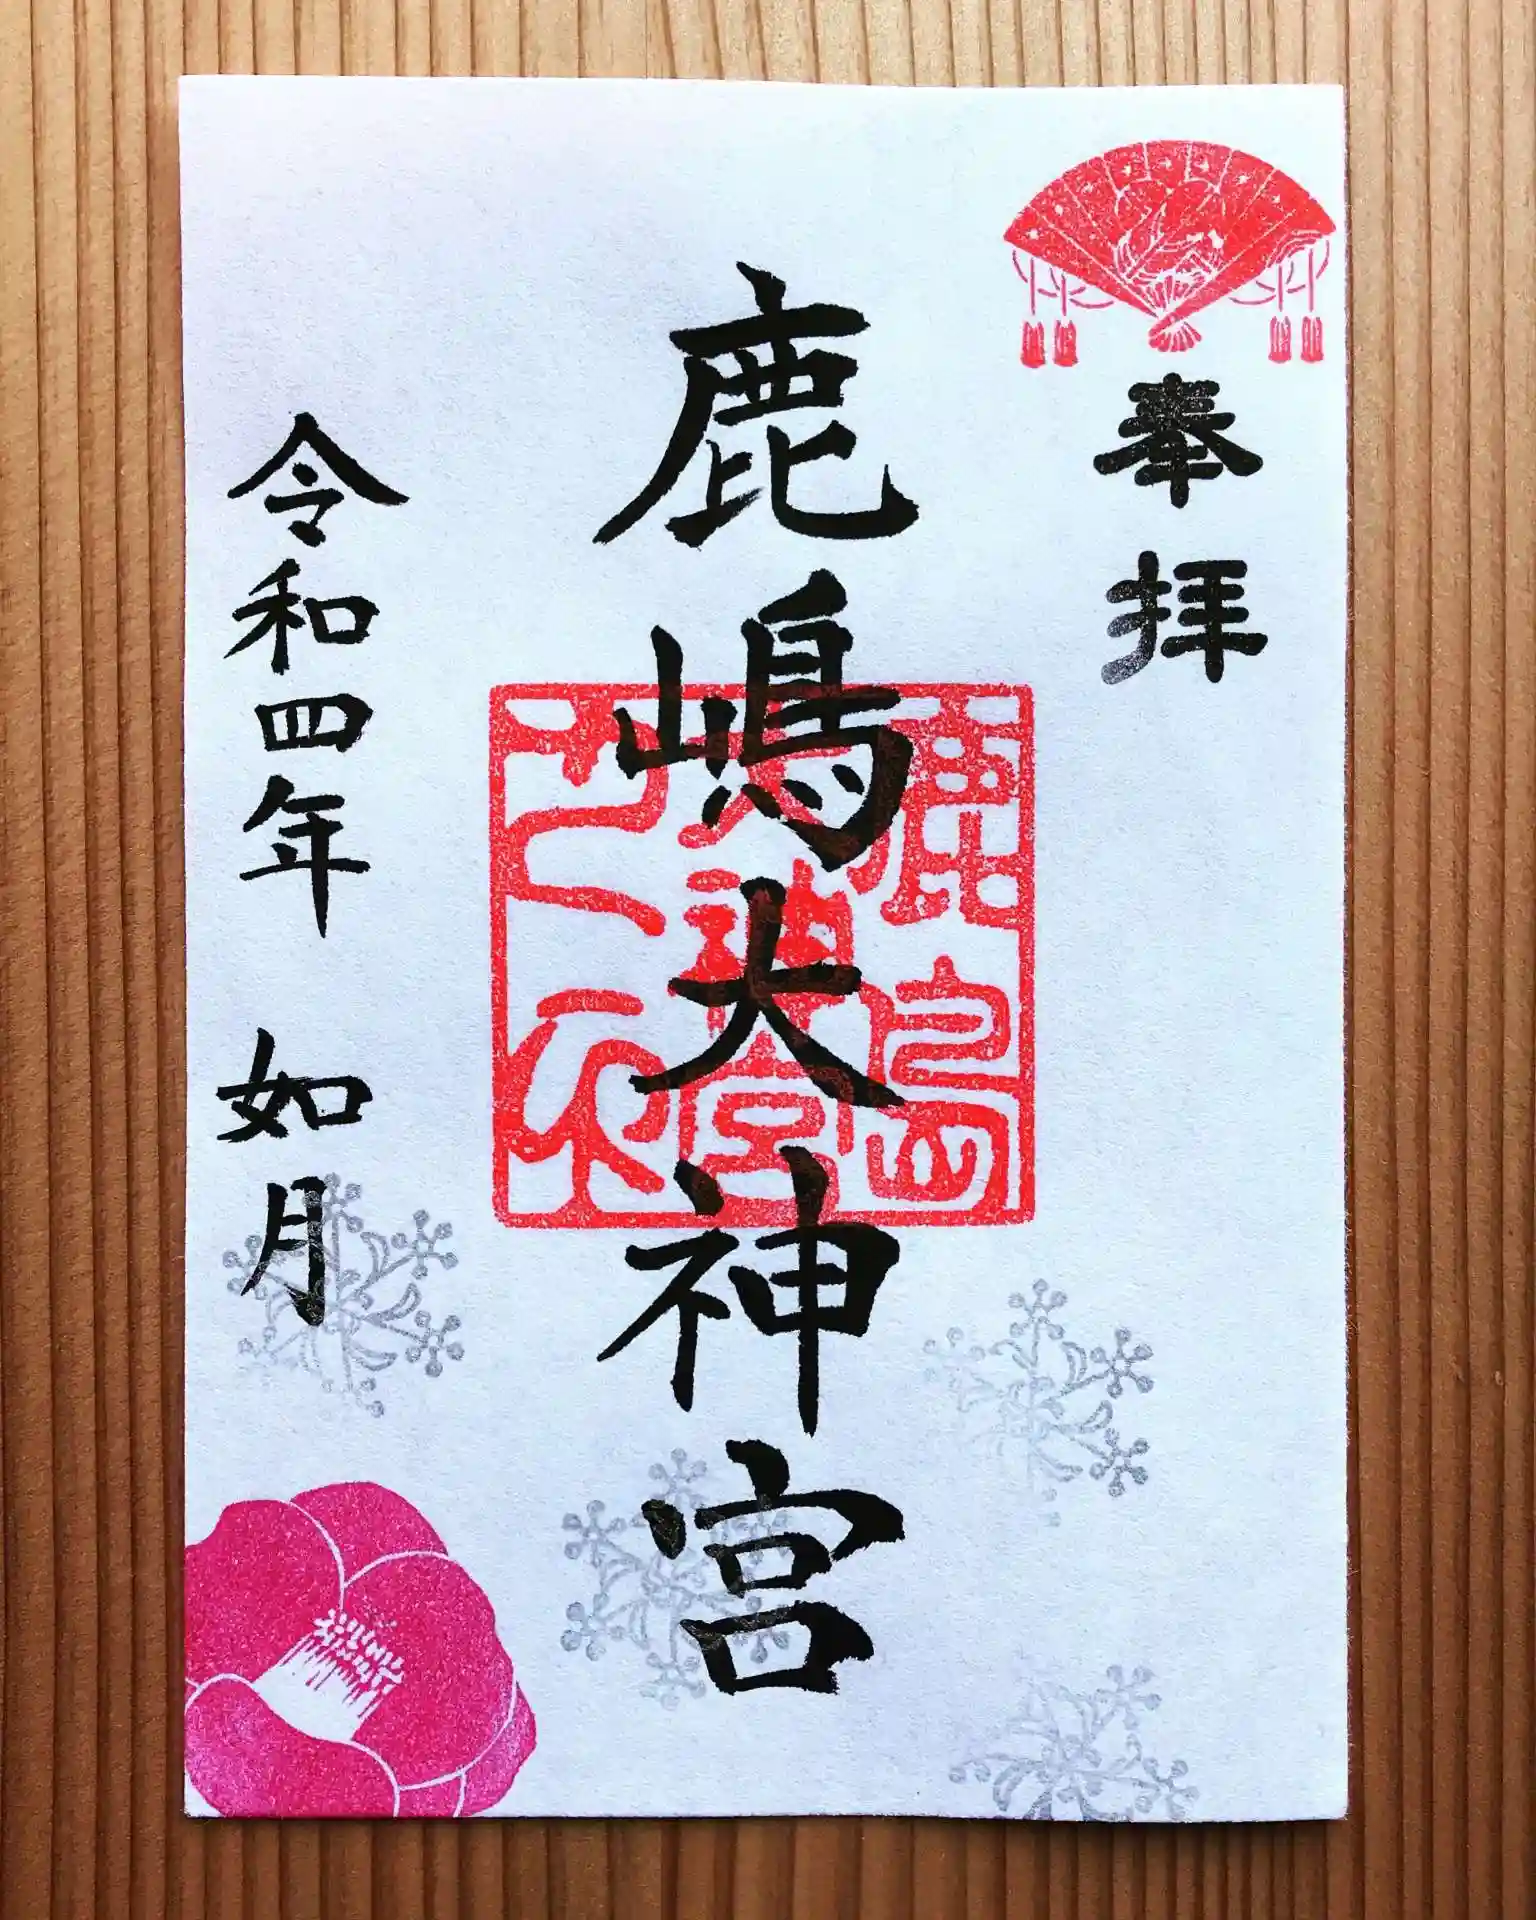 奉拝
鹿嶋大神宮
鹿島
大神宮
之印
令和四年 如月